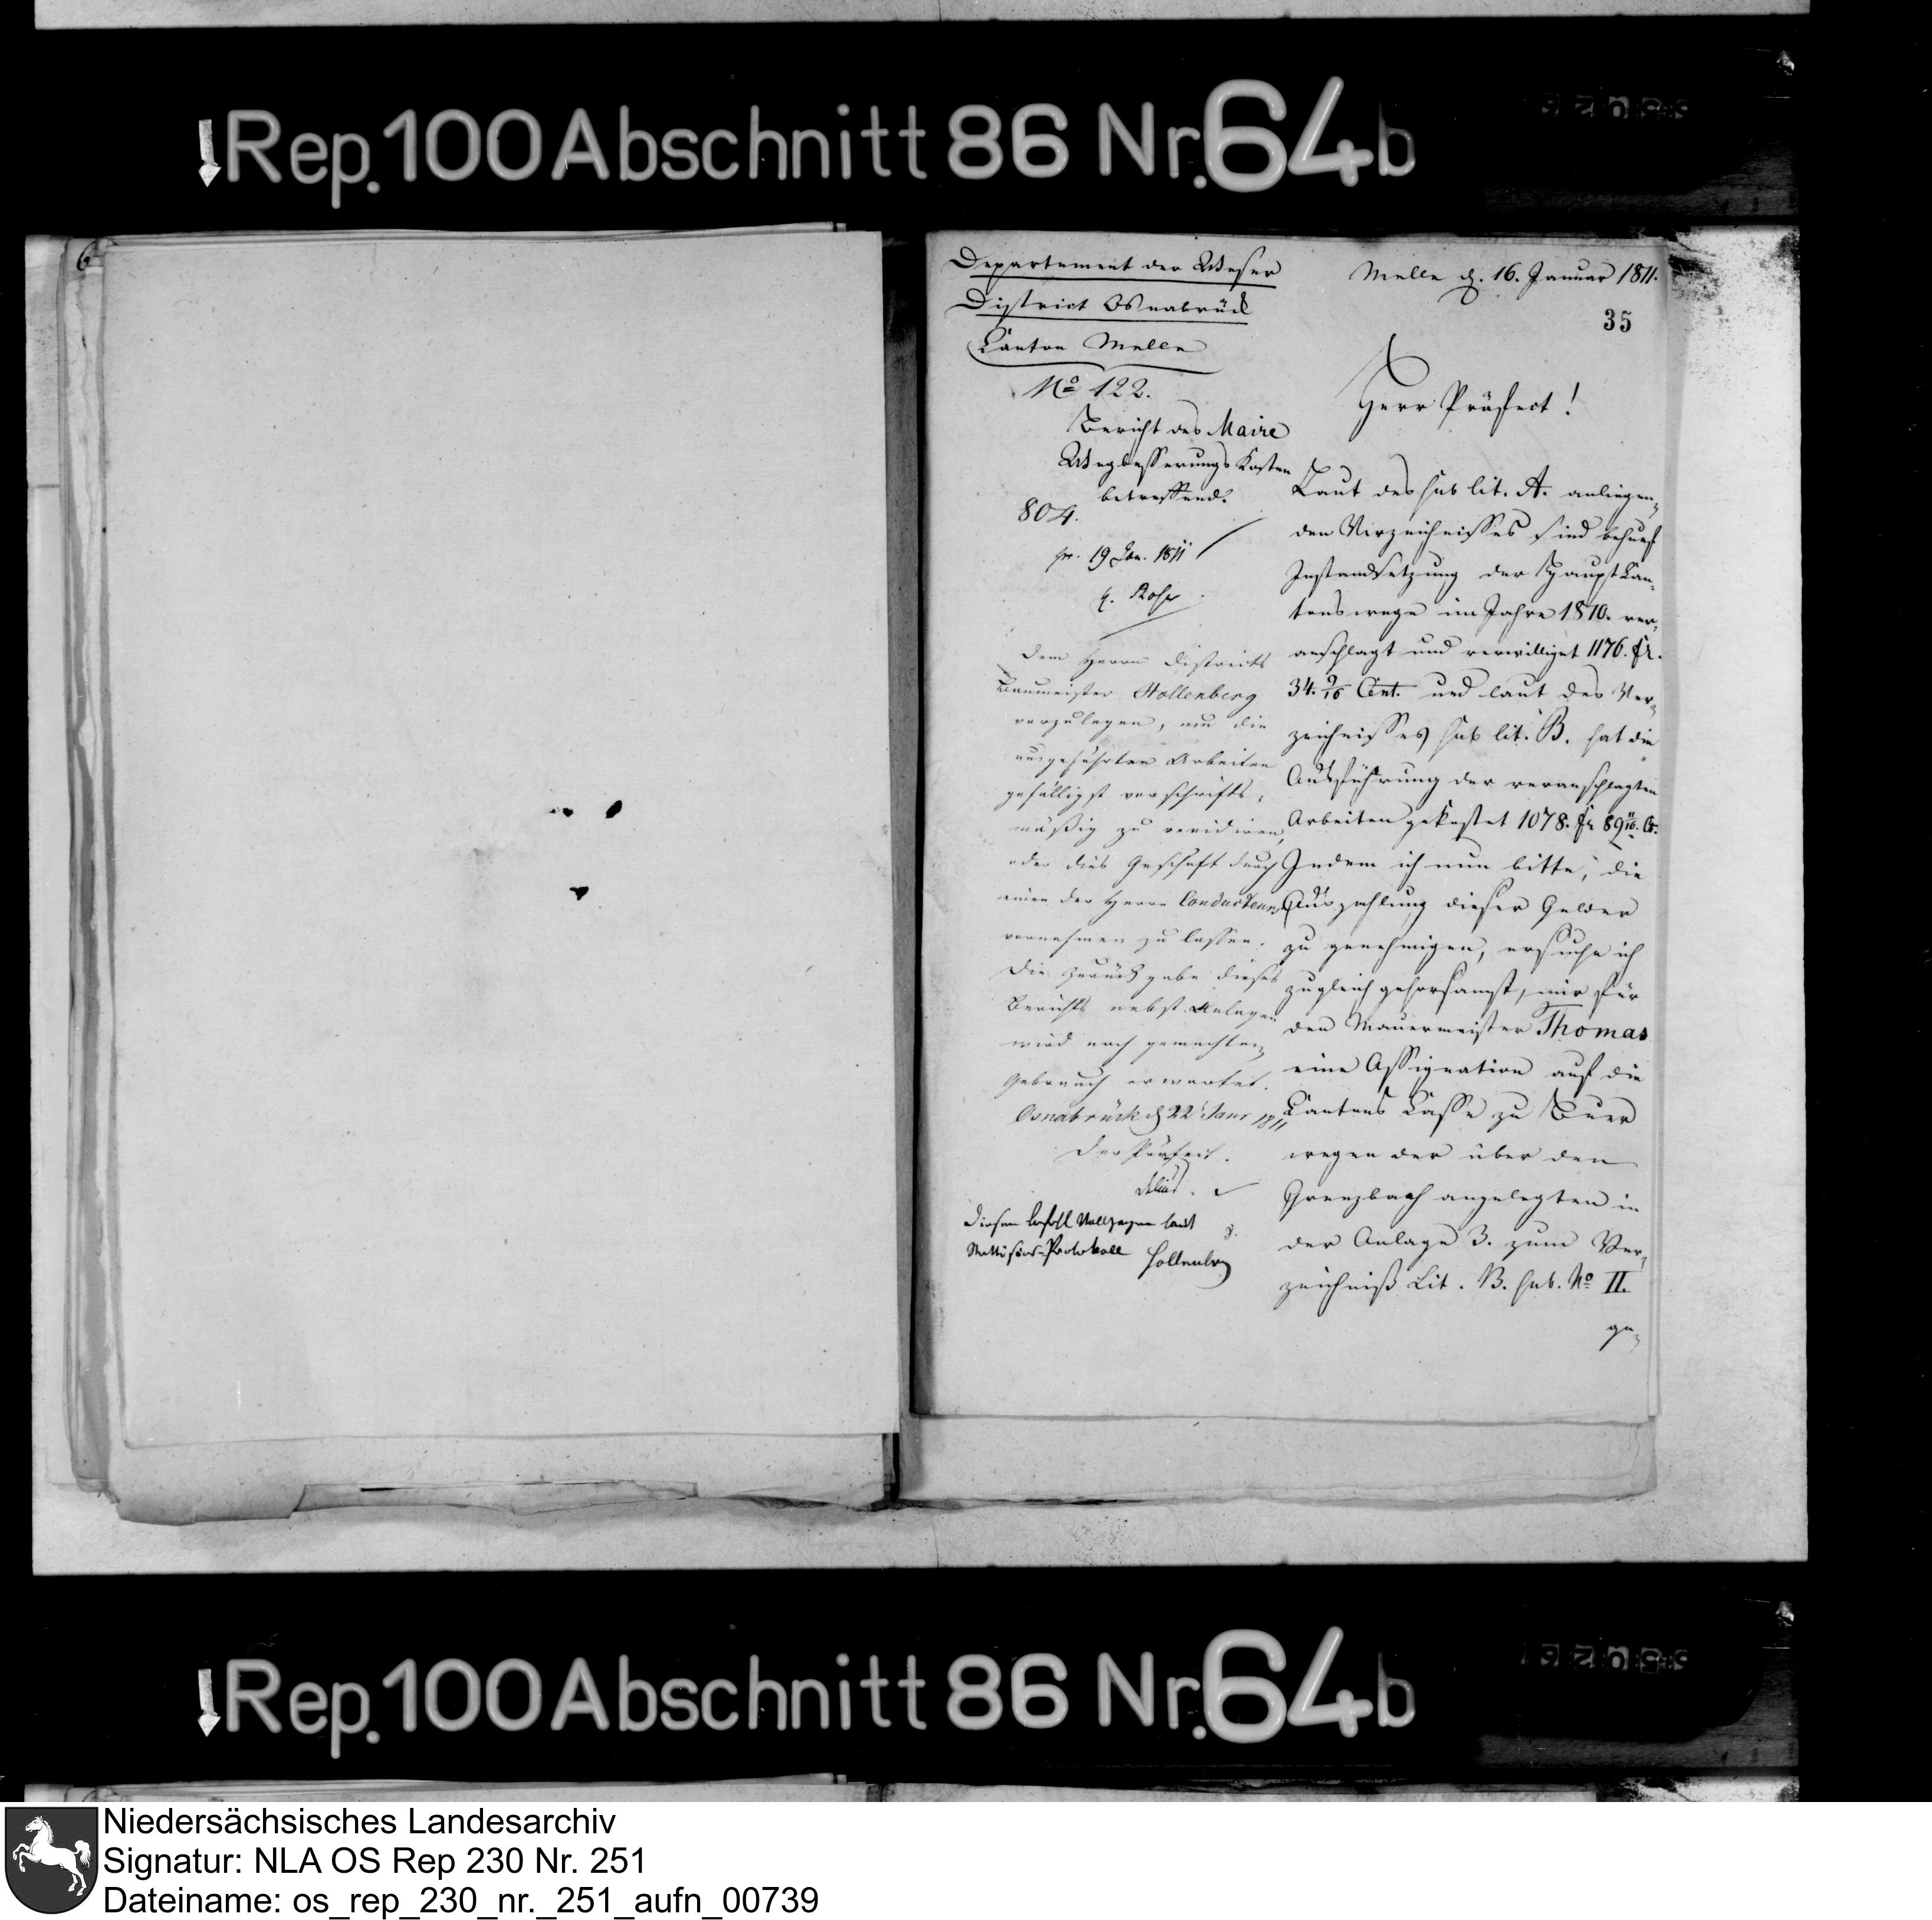 Rep. 100 Abschnitt 86 Nr. 64b
6
Departement der Weser
District Osnabrück
Canton Melle
No 122.
Bericht des Maire
Wegbesserungs Kosten
betreffend.
804.
pr. 19 Jan. 1811
Dem Herrn Districts
Baumeister Hollenberg
vorzulegen, um die
ausgeführten Arbeiten
gefälligst vorschrifts-
mäßig zu revidiren,
oder dies Geschäft durch
einen der Herrn Conducteurs
vornehmen zu lassen.
Die Zurückgabe dieses
Berichts nebst Anlagen
wird nach gemachten
Gebrauch erwartet.
Osnabrück d 22 Janr 1811
Der Präfect.
Diesem Befehl laut
Protokoll Hollenberg
Melle d. 16. Januar 1811.
35
Herr Präfect!
Laut des sub lit. A. anliegen-
den Verzeichnisses sind behuef
Instandsetzung der Haupt Can-
tonswege im Jahre 1810. ver-
anschlagt und verwilliget 1176. fr.
34. 9/16 Cent. und laut des Ver-
zeichnisses sub lit. B. hat die
Ausführung der veranschlagten
Arbeiten gekostet 1078. fr 89 11/16. C.
Indem ich nun bitte, die
Auszahlung dieser Gelder
zu genehmigen, ersuche ich
zugleich gehorsamst, mir für
den Mauermeister Thomas
eine Assignation auf die
Cantons Casse zu Buer
wegen der über den
Grenzbach angelegten in
der Anlage 3. zum Ver-
zeichniß Lit. B. sub. No II.
ge-
Rep. 100 Abschnitt 86 Nr. 64b
Niedersächsisches Landesarchiv
Signatur: NLA OS Rep 230 Nr. 251
Dateiname: os_rep_230_nr._251_aufn_00739